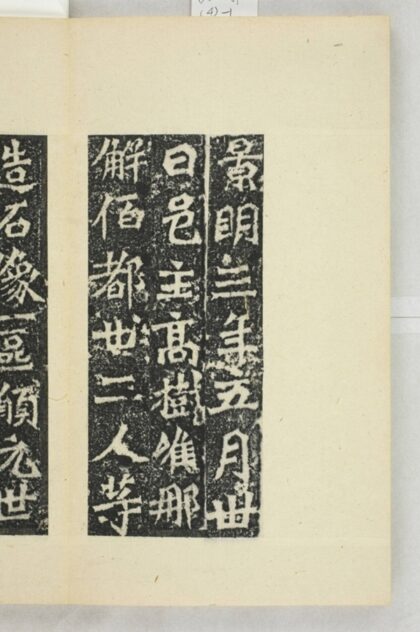 景明三年五月卅
日邑主髙樹唯那
解佰都卅二人等
造石像一區願元世
(4)-1